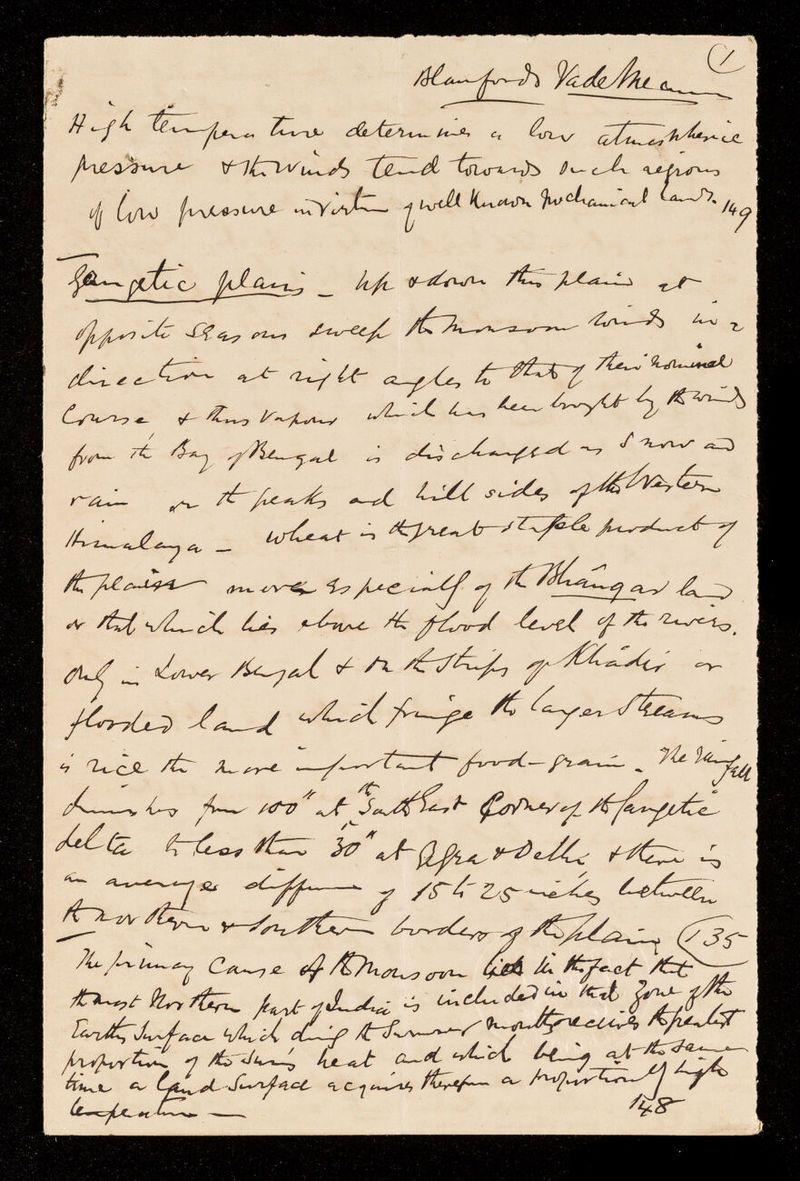 1
Blanfords Vade Mecum
High temperature determines a low atmospheric
pressure & the winds tend towards such regions
of low pressure in virtue of well known mechanical laws. 149
Gangetic plains - up & down this plain at
opposite seasons sweep the monsoon winds in a
direction at right angles to that of their nominal
Course, & thus vapour which has been brought by the winds
from the Bay of Bengal is discharged as snow and
rain on the peaks and hill sides of the Western
Himalaya - wheat is the great staple product of
the plains more especially of the Bhángar land
or that which lies above the flood level of the rivers.
Only in Lower Bengal & on the strips of Khádir or
flooded land which fringe the larger streams
is rice the more important food-grain. The rainfall
diminishes from 100" at the South East Corner of the Gangetic
delta to less than 30" at Agra & Delhi, & there is
an average difference of 15 to 25 inches between
the northern & southern borders of the plain 135
The primary cause of the monsoon lies in the fact that
the most Northern part of India is included in that zone of the
Earths Surface which during the Summer months receives the greatest
proportion of the sun's heat and which being at the same
time a land surface acquires therefrom a proportionally high
temperature - 148